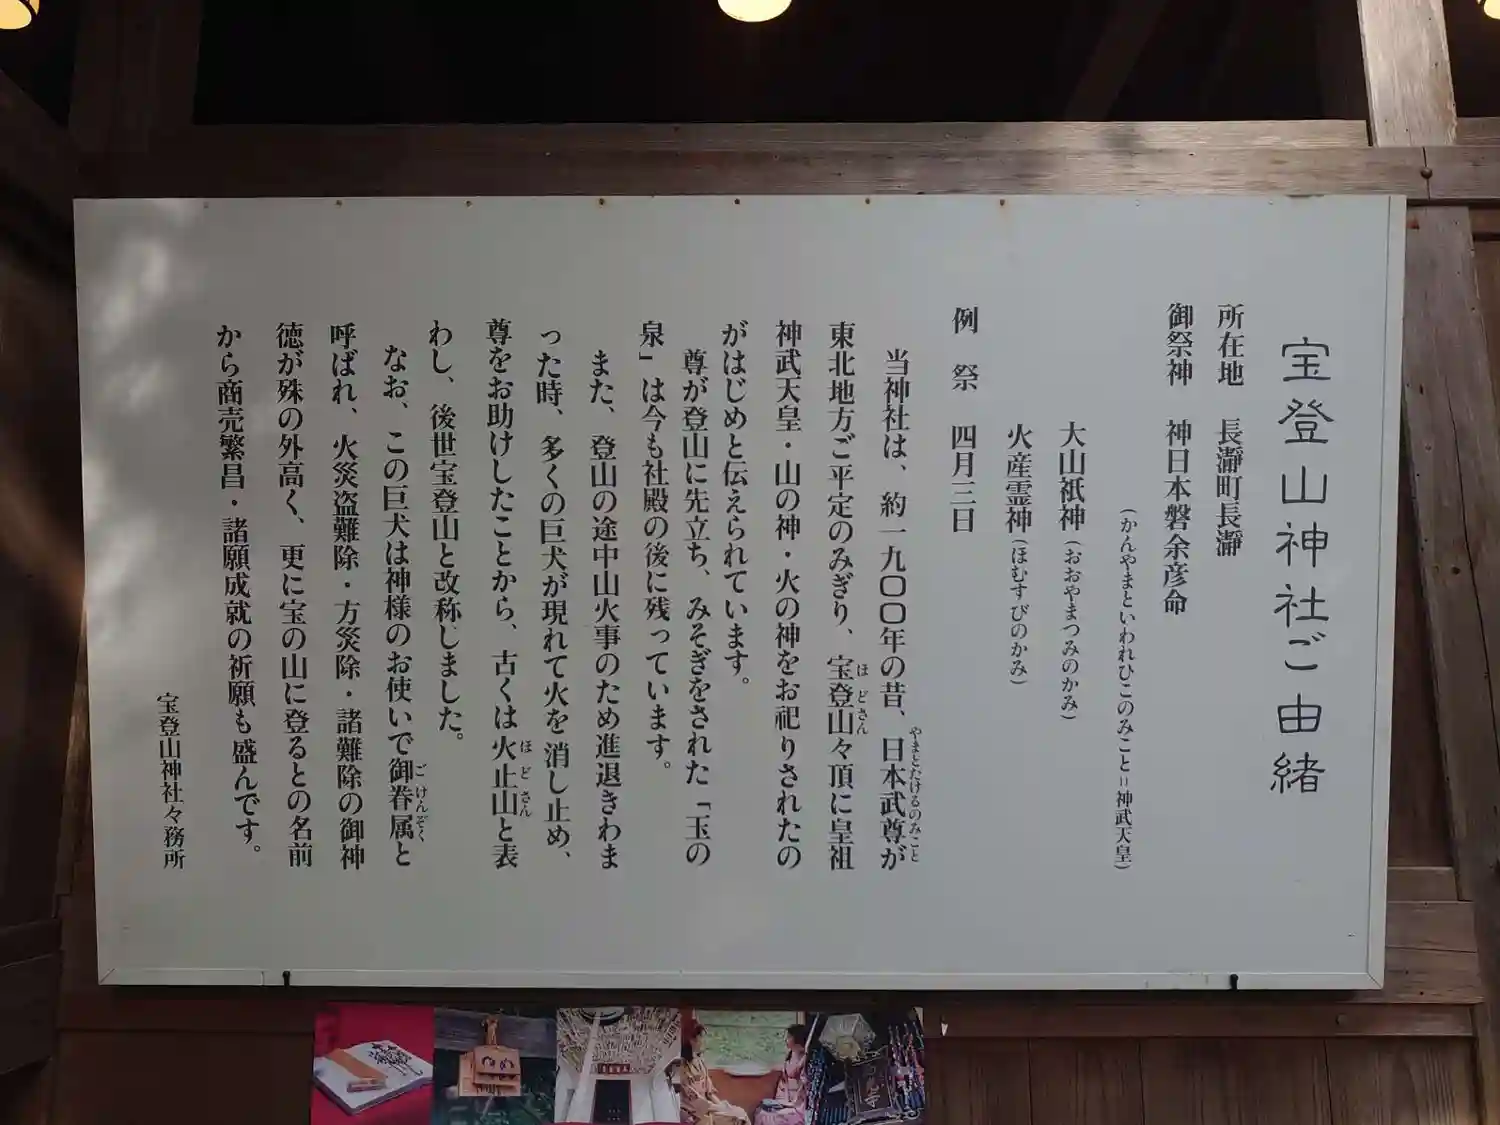 宝登山神社ご由緒
所在地　長瀞町長瀞
御祭神　神日本磐余彦命
（かんやまといわれひこのみこと＝神武天皇）
大山祇神（おおやまつみのかみ）
火産霊神（ほむすびのかみ）
例　祭　四月三日
当神社は、約一九〇〇年の昔、日本武尊（やまとたけるのみこと）が
東北地方ご平定のみぎり、宝登山（ほどさん）々頂に皇祖
神武天皇・山の神・火の神をお祀りされたの
がはじめと伝えられています。
尊が登山に先立ち、みそぎをされた「玉の
泉」は今も社殿の後に残っています。
また、登山の途中山火事のため進退きわま
った時、多くの巨犬が現れて火を消し止め、
尊をお助けしたことから、古くは火止山（ほどさん）と表
わし、後世宝登山と改称しました。
なお、この巨犬は神様のお使いで御眷属（ごけんぞく）と
呼ばれ、火災盗難除・方災除・諸難除の御神
徳が殊の外高く、更に宝の山に登るとの名前
から商売繁昌・諸願成就の祈願も盛んです。
宝登山神社々務所